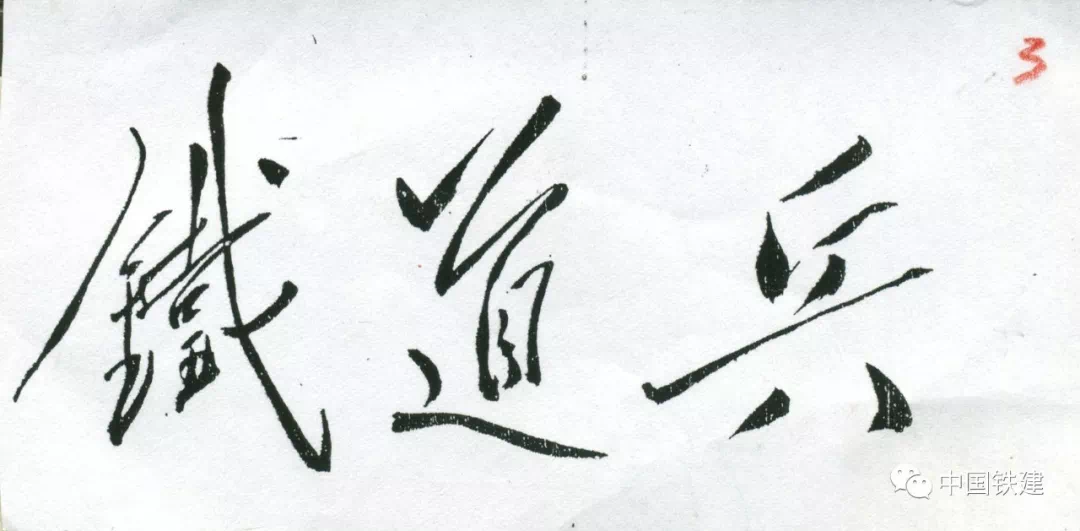 3
鐵道兵
中国铁建